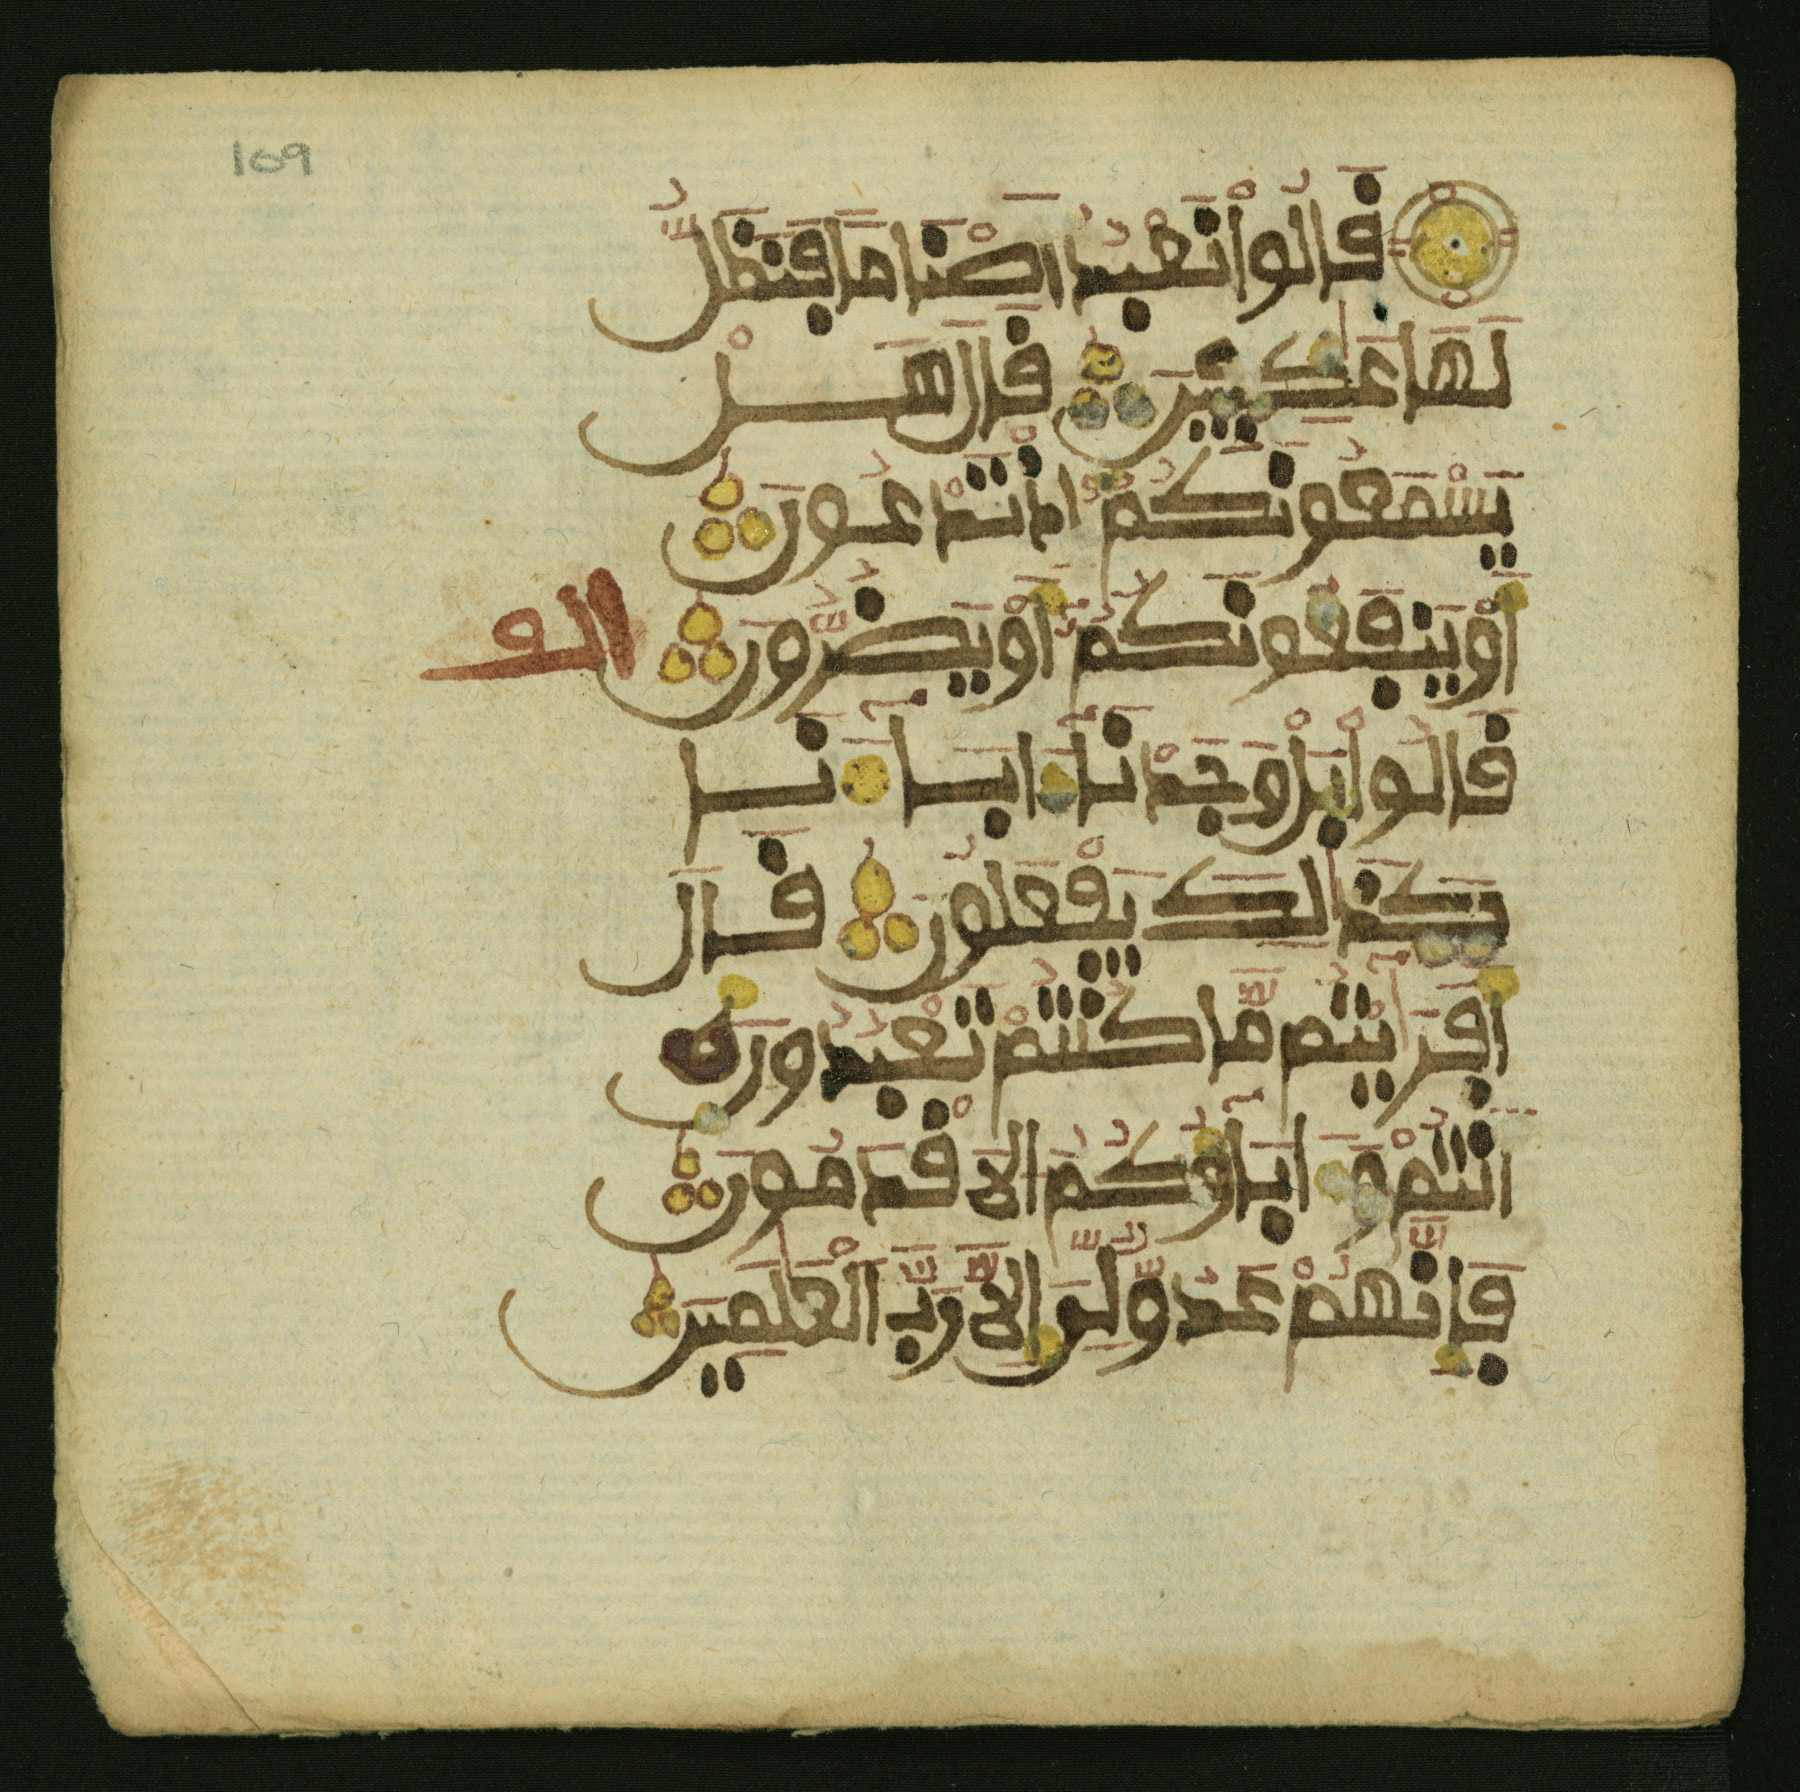 109
قَالُواْ نَعْبُدُ أَصْنَامًا فَنَظَلُّ
لَهَا عَٰكِفِينَ قَالَ هَلْ
يَسْمَعُونَكُمُۥ إِذْ تَدْعُونَ
أَوْ يَنفَعُونَكُمُۥ أَوْ يَضُرُّونَ
قَالُواْ بَلْ وَجَدْنَآ ءَابَآءَنَا
كَذَٰلِكَ يَفْعَلُونَ قَالَ
أَفَرَٰٓيْتُم مَّا كُنتُمْ تَعْبُدُونَ
أَنتُمْ وَءَابَآؤُكُمُ الَاقْدَمُونَ
فَإِنَّهُمْ عَدُوٌّ لِّيَ إِلَّا رَبَّ الْعَٰلَمِينَ